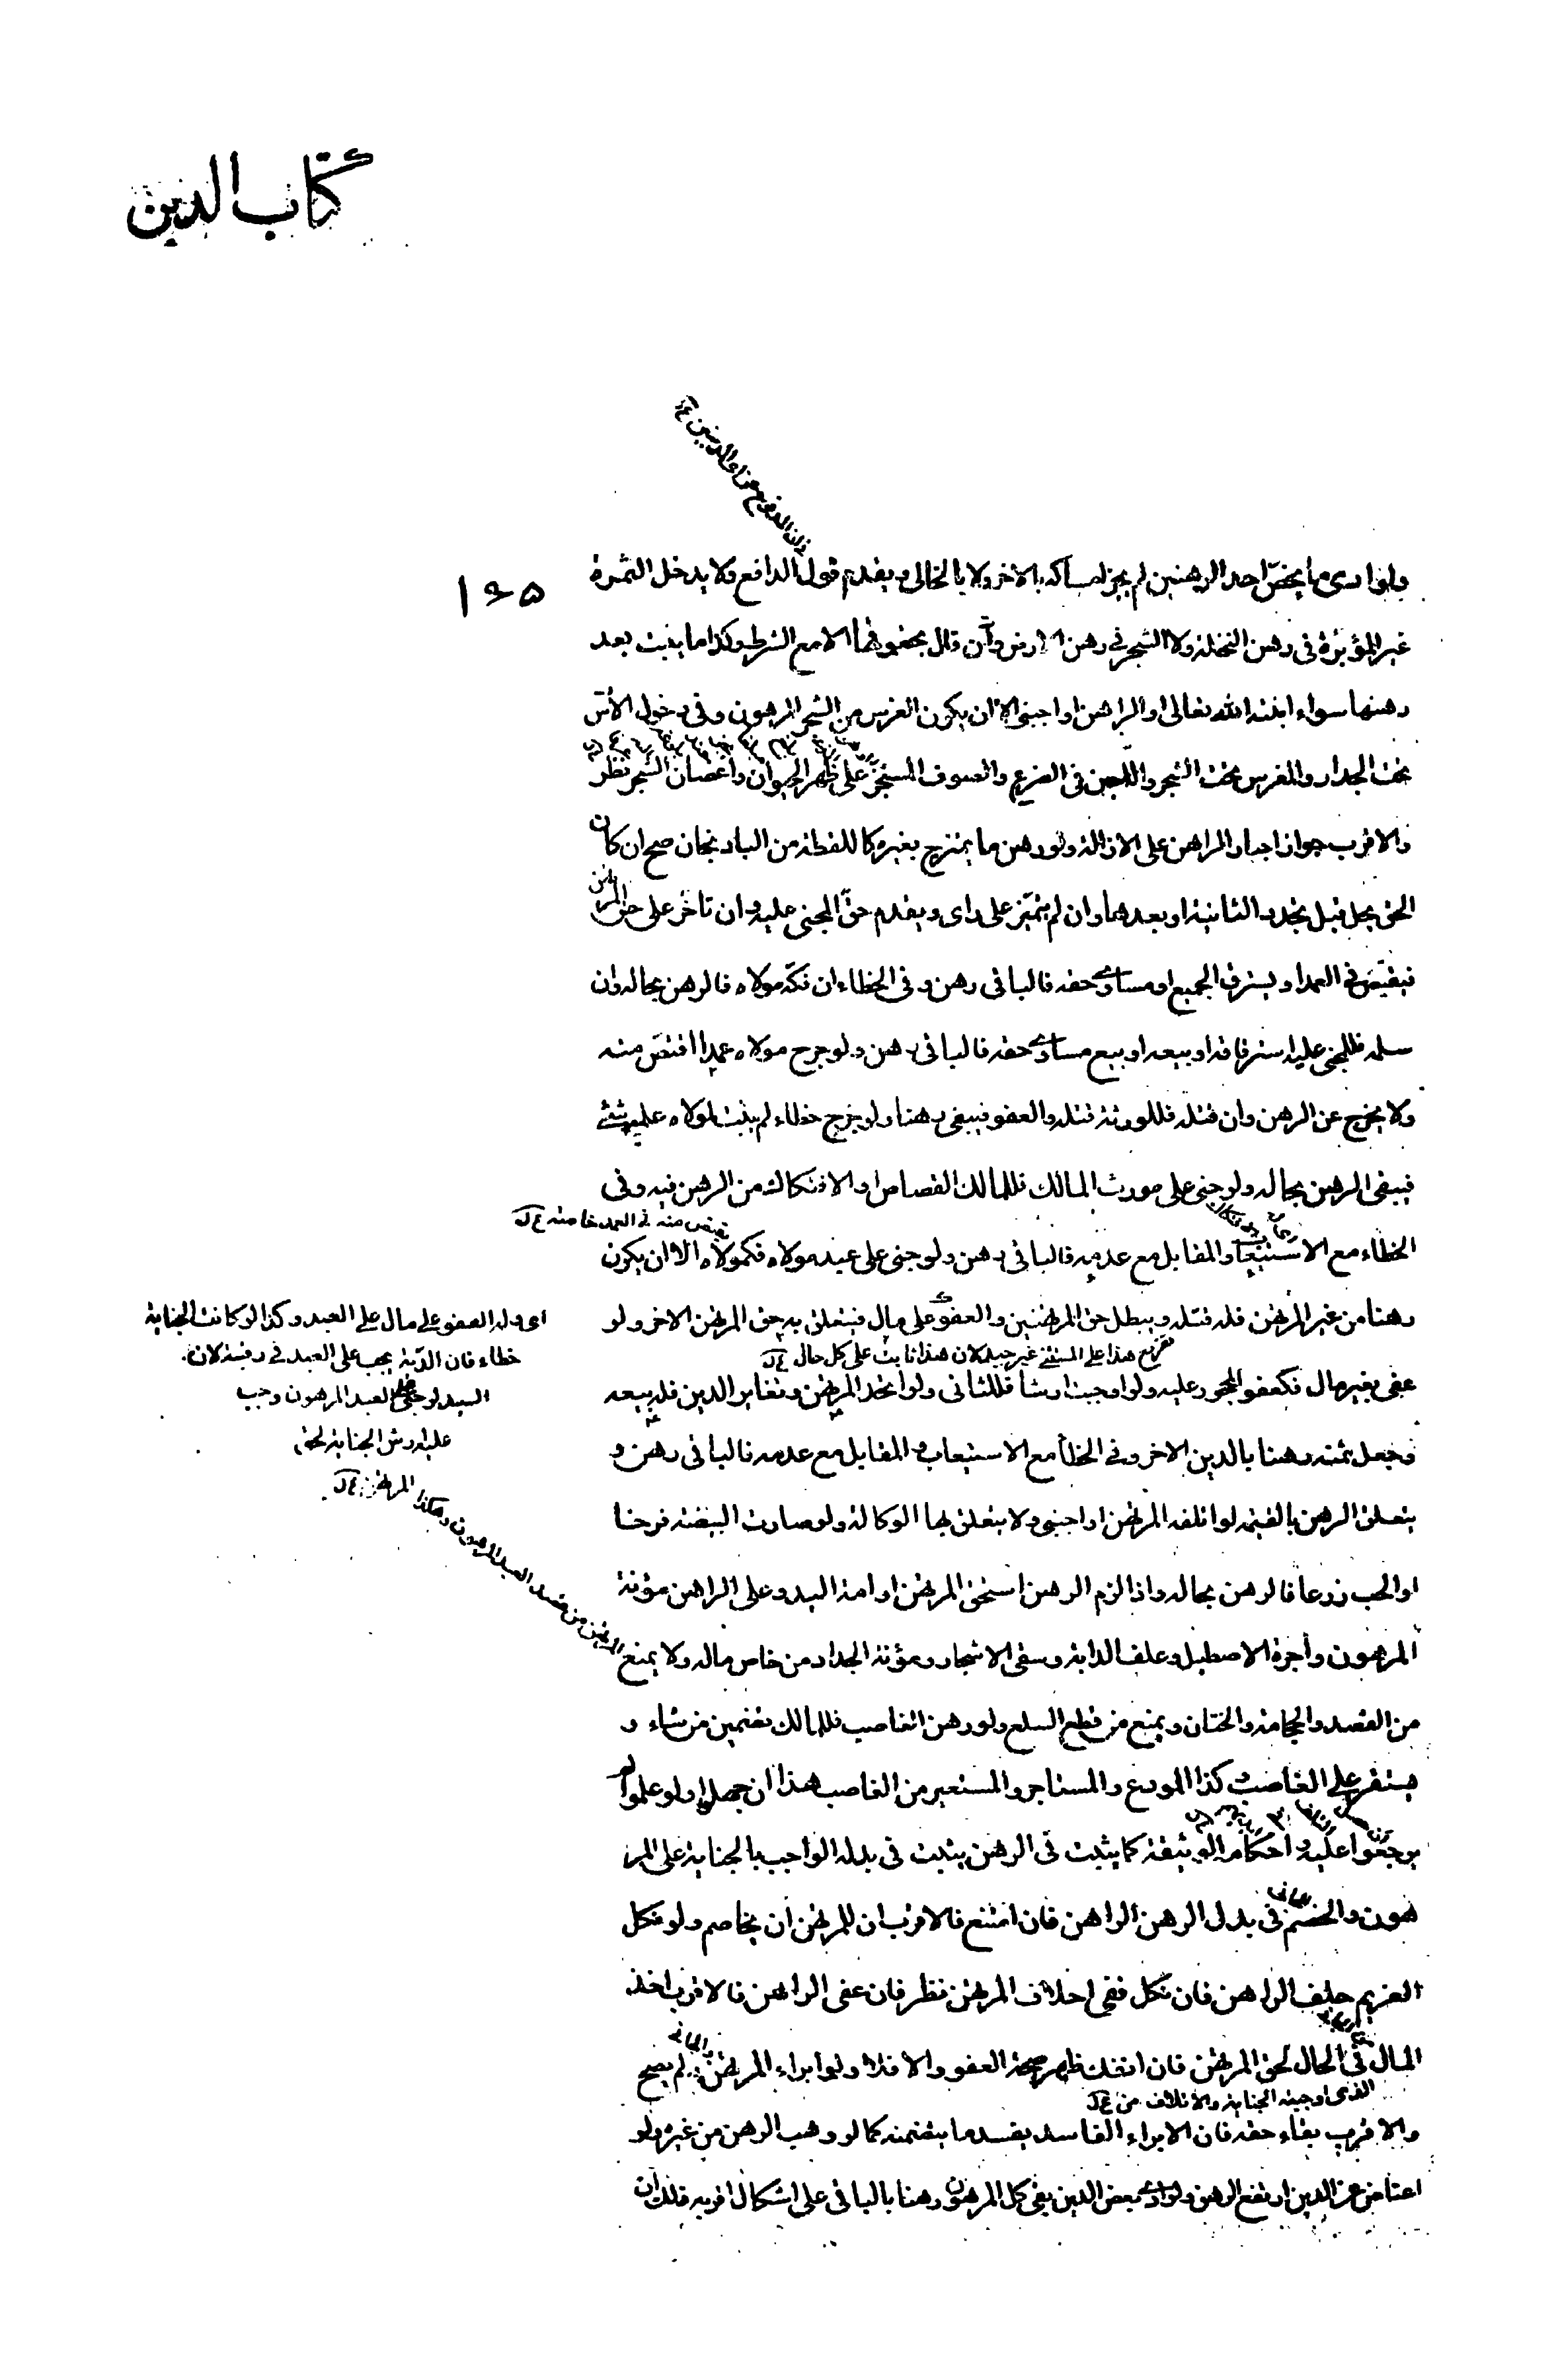 كتاب الدين
١٩٥
ولو ادى ما يخص احد الرهنين لم يجز امساكه بالاخر ولا بالخالى ويقدم قول الدافع ولا يدخل الثمرة
غير المؤبرة فى رهن النخلة ولا الشجر فى رهن الارض وان قال بحقوقهما الا مع الشرط وكذا ما ينبت بعد
رهنها سواء انبته الله تعالى او الراهن او اجنبى الا ان يكون الغرس من الشجر المرهون وفى دخول الأس
تحت الجدار والمغرس تحت الشجر واللبن فى الضرع والصوف المستجز على ظهر الحيوان واغصان الشجر نظر
والاقرب جواز اجبار الراهن على الازالة ولو رهن ما يمتزج بغيره كاللقطة من الباذنجان صح ان كان
الحق يحل قبل تجدد الثانية او بعدها وان لم يتميز على راى ويقدم حق المجنى عليه وان تاخر على حق المرتهن
فيقتص فى العمد او يسترق الجميع او مساوى حقه فالباقى رهن وفى الخطاء ان فكه مولاه فالرهن بحاله وان
سلمه فللمجنى عليه استرقاقه او بيعه او بيع مساوى حقه فالباقى رهن ولو جرح مولاه عمدا اقتص منه
ولا يخرج عن الرهن وان قتله فللورثة قتله والعفو فيبقى رهنا ولو جرح خطاء لم يثبت لمولاه عليه شئ
فيبقى الرهن بحاله ولو جنى على مورث المالك فللمالك القصاص او الافتكاك من الرهن فيه وفى
يقتص منه فى العمد خاصة ع ل
الخطاء مع الاستيعاب والمقابل مع عدمه فالباقى رهن ولو جنى على عبد مولاه فكمولاه الا ان يكون
رهنا من غير المرتهن فله قتله ويبطل حق المرتهنين والعفو على مال فيتعلق به حق المرتهن الاخر ولو
تفريع هذا على المستثنى غير جيد لان هذا ثابت على كل حال ع ل
عفى بغير مال فكعفو المحجور عليه ولو اوجبت ارشا فللثانى ولو اتحد المرتهن وتغاير الدين فله بيعه
وجعل ثمنه رهنا بالدين الاخر وفى الخطأ مع الاستيعاب والمقابل مع عدمه فالباقى رهن و
يتعلق الرهن بالقيمة لو اتلفه المرتهن او اجنبى ولا يتعلق بها الوكالة ولو صارت البيضة فرخا
او الحب زرعا فالرهن بحاله واذا لزم الرهن استحق المرتهن ادامة اليد وعلى الراهن مؤنة
المرهون واجرة الاصطبل وعلف الدابة وسقى الاشجار ومؤنة الجداد من خاص ماله ولا يمنع
من الفصد والحجامة والختان ويمنع من قطع السلع ولو رهن الغاصب فللمالك تضمين من شاء و
يستقر على الغاصب وكذا المودع والمستاجر والمستعير من الغاصب هذا ان جهلوا ولو علموا لم
يرجعوا عليه واحكام الوثيقة كما يثبت فى الرهن يثبت فى بدله الواجب بالجناية على المر
هون والخصم فى بدل الرهن الراهن فان امتنع فالاقرب ان للمرتهن ان يخاصم ولو نكل
الغريم حلف الراهن فان نكل ففى احلاف المرتهن نظر فان عفى الراهن فالاقرب اخذ
المال فى الحال لحق المرتهن فان انفك ظهر صحة العفو والا فلا ولو ابراء المرتهن لم يصح
الذى اوجبته الجناية والاتلاف من ع ل
والاقرب بقاء حقه فان الابراء الفاسد يفسد ما يتضمنه كما لو وهب الرهن من غيره ولو
اعتاض عن الدين ارتفع الرهن ولو ادى بعض الدين بقى كل المرهون رهنا بالباقى على اشكال اقربه ذلك ان
اى وله العفو على مال على العبد وكذا لو كانت الجناية
خطاء فان الدية يجب على العبد فى رقبته لان
السيد لو جنى على العبد المرهون وجب
عليه ارش الجناية لحق
المرتهن ع ل